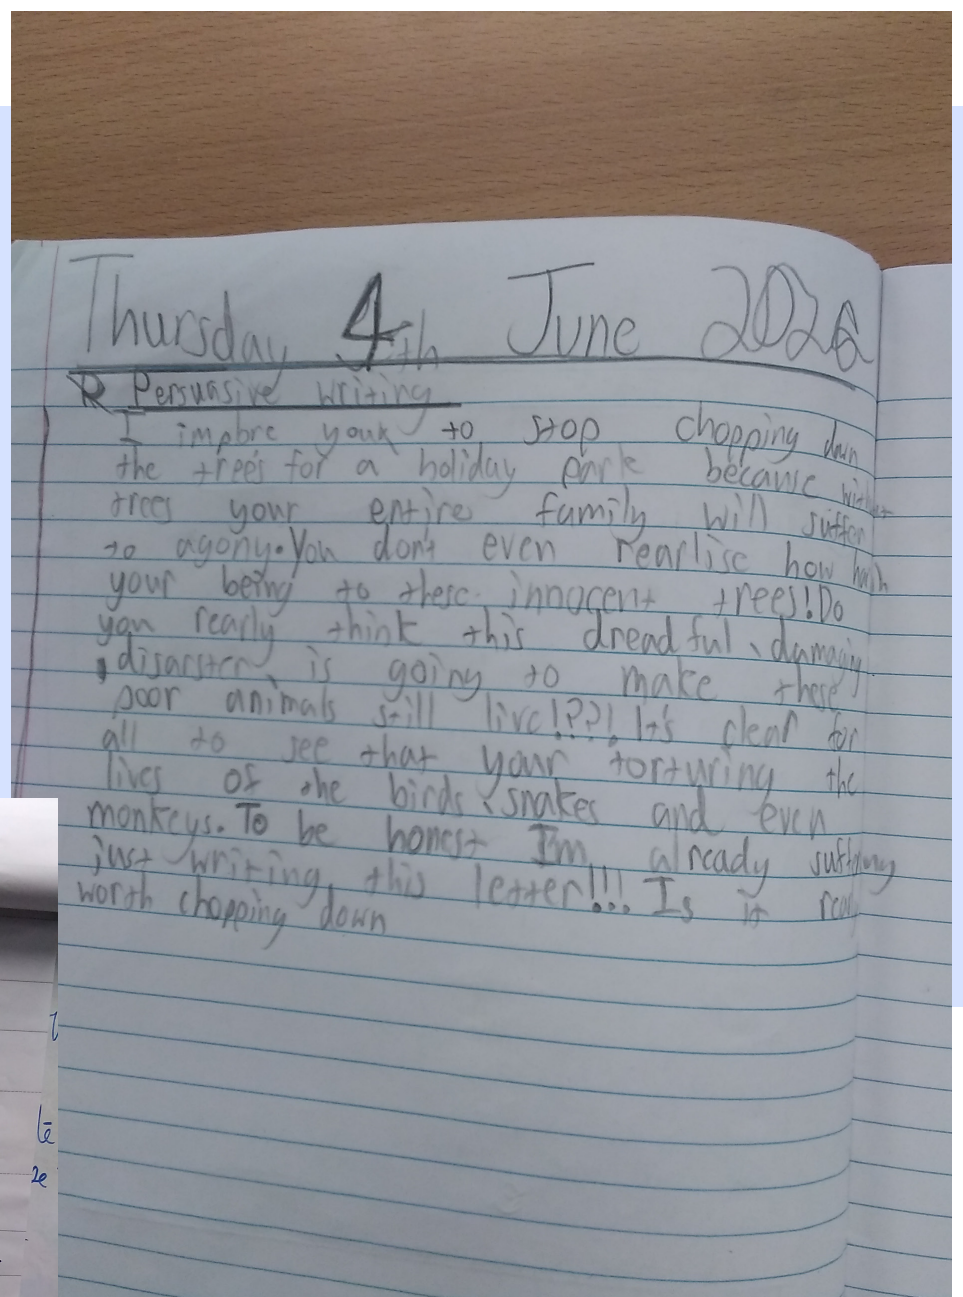 Thursday 4th June 2026
R Persuasive writing
I implore youx to stop chopping down
the trees for a holiday park because without
trees your entire family will suffer
to agony. You don't even rearlise how harsh
your being to these innocent trees! Do
you rearly think this dreadful, damaging
disarster is going to make these
poor animals still live!??! It's clear for
all to see that your torturing the
lives of the birds, snakes and even
monkeys. To be honest I'm already suffering
just writing this letter!!! Is it
worth chopping down
te